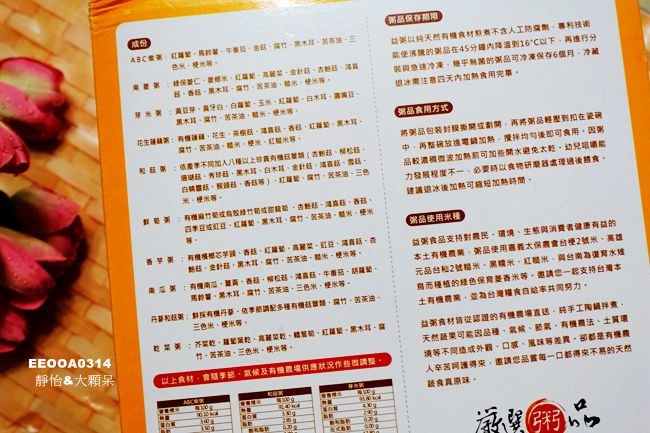 成份
ABC粥粥：紅蘿蔔、馬鈴薯、牛番茄、金菇、腐竹、黑木耳、苦茶油、三
色米、梗米等。
南菱粥：綠保菱仁、菱鄉米、紅蘿蔔、高麗菜、金針菇、杏鮑菇、鴻喜
菇、香菇、黑木耳、腐竹、苦茶油、三色米、梗米等。
芽米粥：黃豆芽、黃牙白、白蘿蔔、玉米、紅蘿蔔、白木耳、鷹嘴豆、
黑木耳、腐竹、苦茶油、三色米、梗米等。
花生蓮藕粥：有機蓮藕、花生、茶樹菇、鴻喜菇、香菇、紅蘿蔔、黑木耳、
腐竹、苦茶油、三色米、梗米等。
和菇粥：依產季不同加入八種以上珍貴有機菇蕈類（杏鮑菇、柳松菇、
珊瑚菇、秀珍菇、黑木耳、白木耳、金針菇、鴻喜菇、雪菇、
白精靈菇、猴頭菇、香菇等）、紅蘿蔔、腐竹、苦茶油、三色
米、梗米等。
鮮筍粥：有機麻竹筍或烏殼綠竹筍或甜龍筍、杏鮑菇、鴻喜菇、香菇、
四季豆或豇豆、紅蘿蔔、黑木耳、腐竹、苦茶油、三色米、梗米
等。
香芋粥：有機檳榔芯芋頭、香菇、紅蘿蔔、高麗菜、豇豆、鴻喜菇、杏
鮑菇、金針菇、黑木耳、腐竹、苦茶油、三色米、梗米等。
南瓜粥：有機南瓜、薑黃、香菇、柳松菇、鴻喜菇、牛番茄、胡蘿蔔、
馬鈴薯、黑木耳、腐竹、苦茶油、三色米、梗米等。
丹蔘和菇粥：鮮採有機丹蔘、依季節調配多種有機菇蕈類、腐竹、苦茶油、
三色米、梗米等。
乾菜粥：芥菜乾、蘿蔔葉乾、高麗菜乾、鱔蒿筍、紅蘿蔔、黑木耳、腐
竹、苦茶油、三色米、梗米等。
以上食材，會隨季節、氣候及有機農場供應狀況作些微調整。
粥品保存期限
益粥以純天然有機食材熬煮不含人工防腐劑，專利技術
能使沸騰的粥品在45分鐘內降溫到16°C以下，再進行分
裝與急速冷凍，幾乎無菌的粥品可冷凍保存6個月，冷藏
退冰需注意四天內加熱食用完畢。
粥品食用方式
將粥品包裝封膜撕開或劃開，再將粥品輕壓到扣在瓷碗
中，再整碗放進電鍋加熱，攪拌均勻後即可食用。因粥
品較濃稠微波加熱前可加些開水避免太乾。幼兒咀嚼能
力發展程度不一，必要時以食物研磨器處理過後餵食。
建議退冰後加熱可縮短加熱時間。
粥品使用米種
益粥食品支持對農民、環境、生態與消費者健康有益的
本土有機農業，粥品使用嘉義太保農會台梗2號米、高雄
元品台和2號糙米、黑糯米、紅糙米，與台南為復育水雉
鳥而種植的綠色保育菱香米等。邀請您一起支持台灣本
土有機農業，並為台灣糧食自給率共同努力。
益粥食材皆從認證的有機農場直送，純手工陶鍋拌煮，
天然蔬果可能因品種、氣候、節氣、有機農法、土質環
境等不同造成外觀、口感、風味等差異，卻都是有機農
人辛苦呵護得來，邀請您品嘗每一口都得來不易的天然
蔬食真原味。
ABC龍粥
營養標示 每100g
熱量 90.10 kcal
蛋白質 3.60 g
脂肪 3.50 g
和菇粥
營養標示 每100g
熱量 91.40 kcal
蛋白質 3.30 g
芽米粥
營養標示 每100g
熱量 93.80 kcal
嚴選粥品
EEOOA0314
靜怡&大顆呆